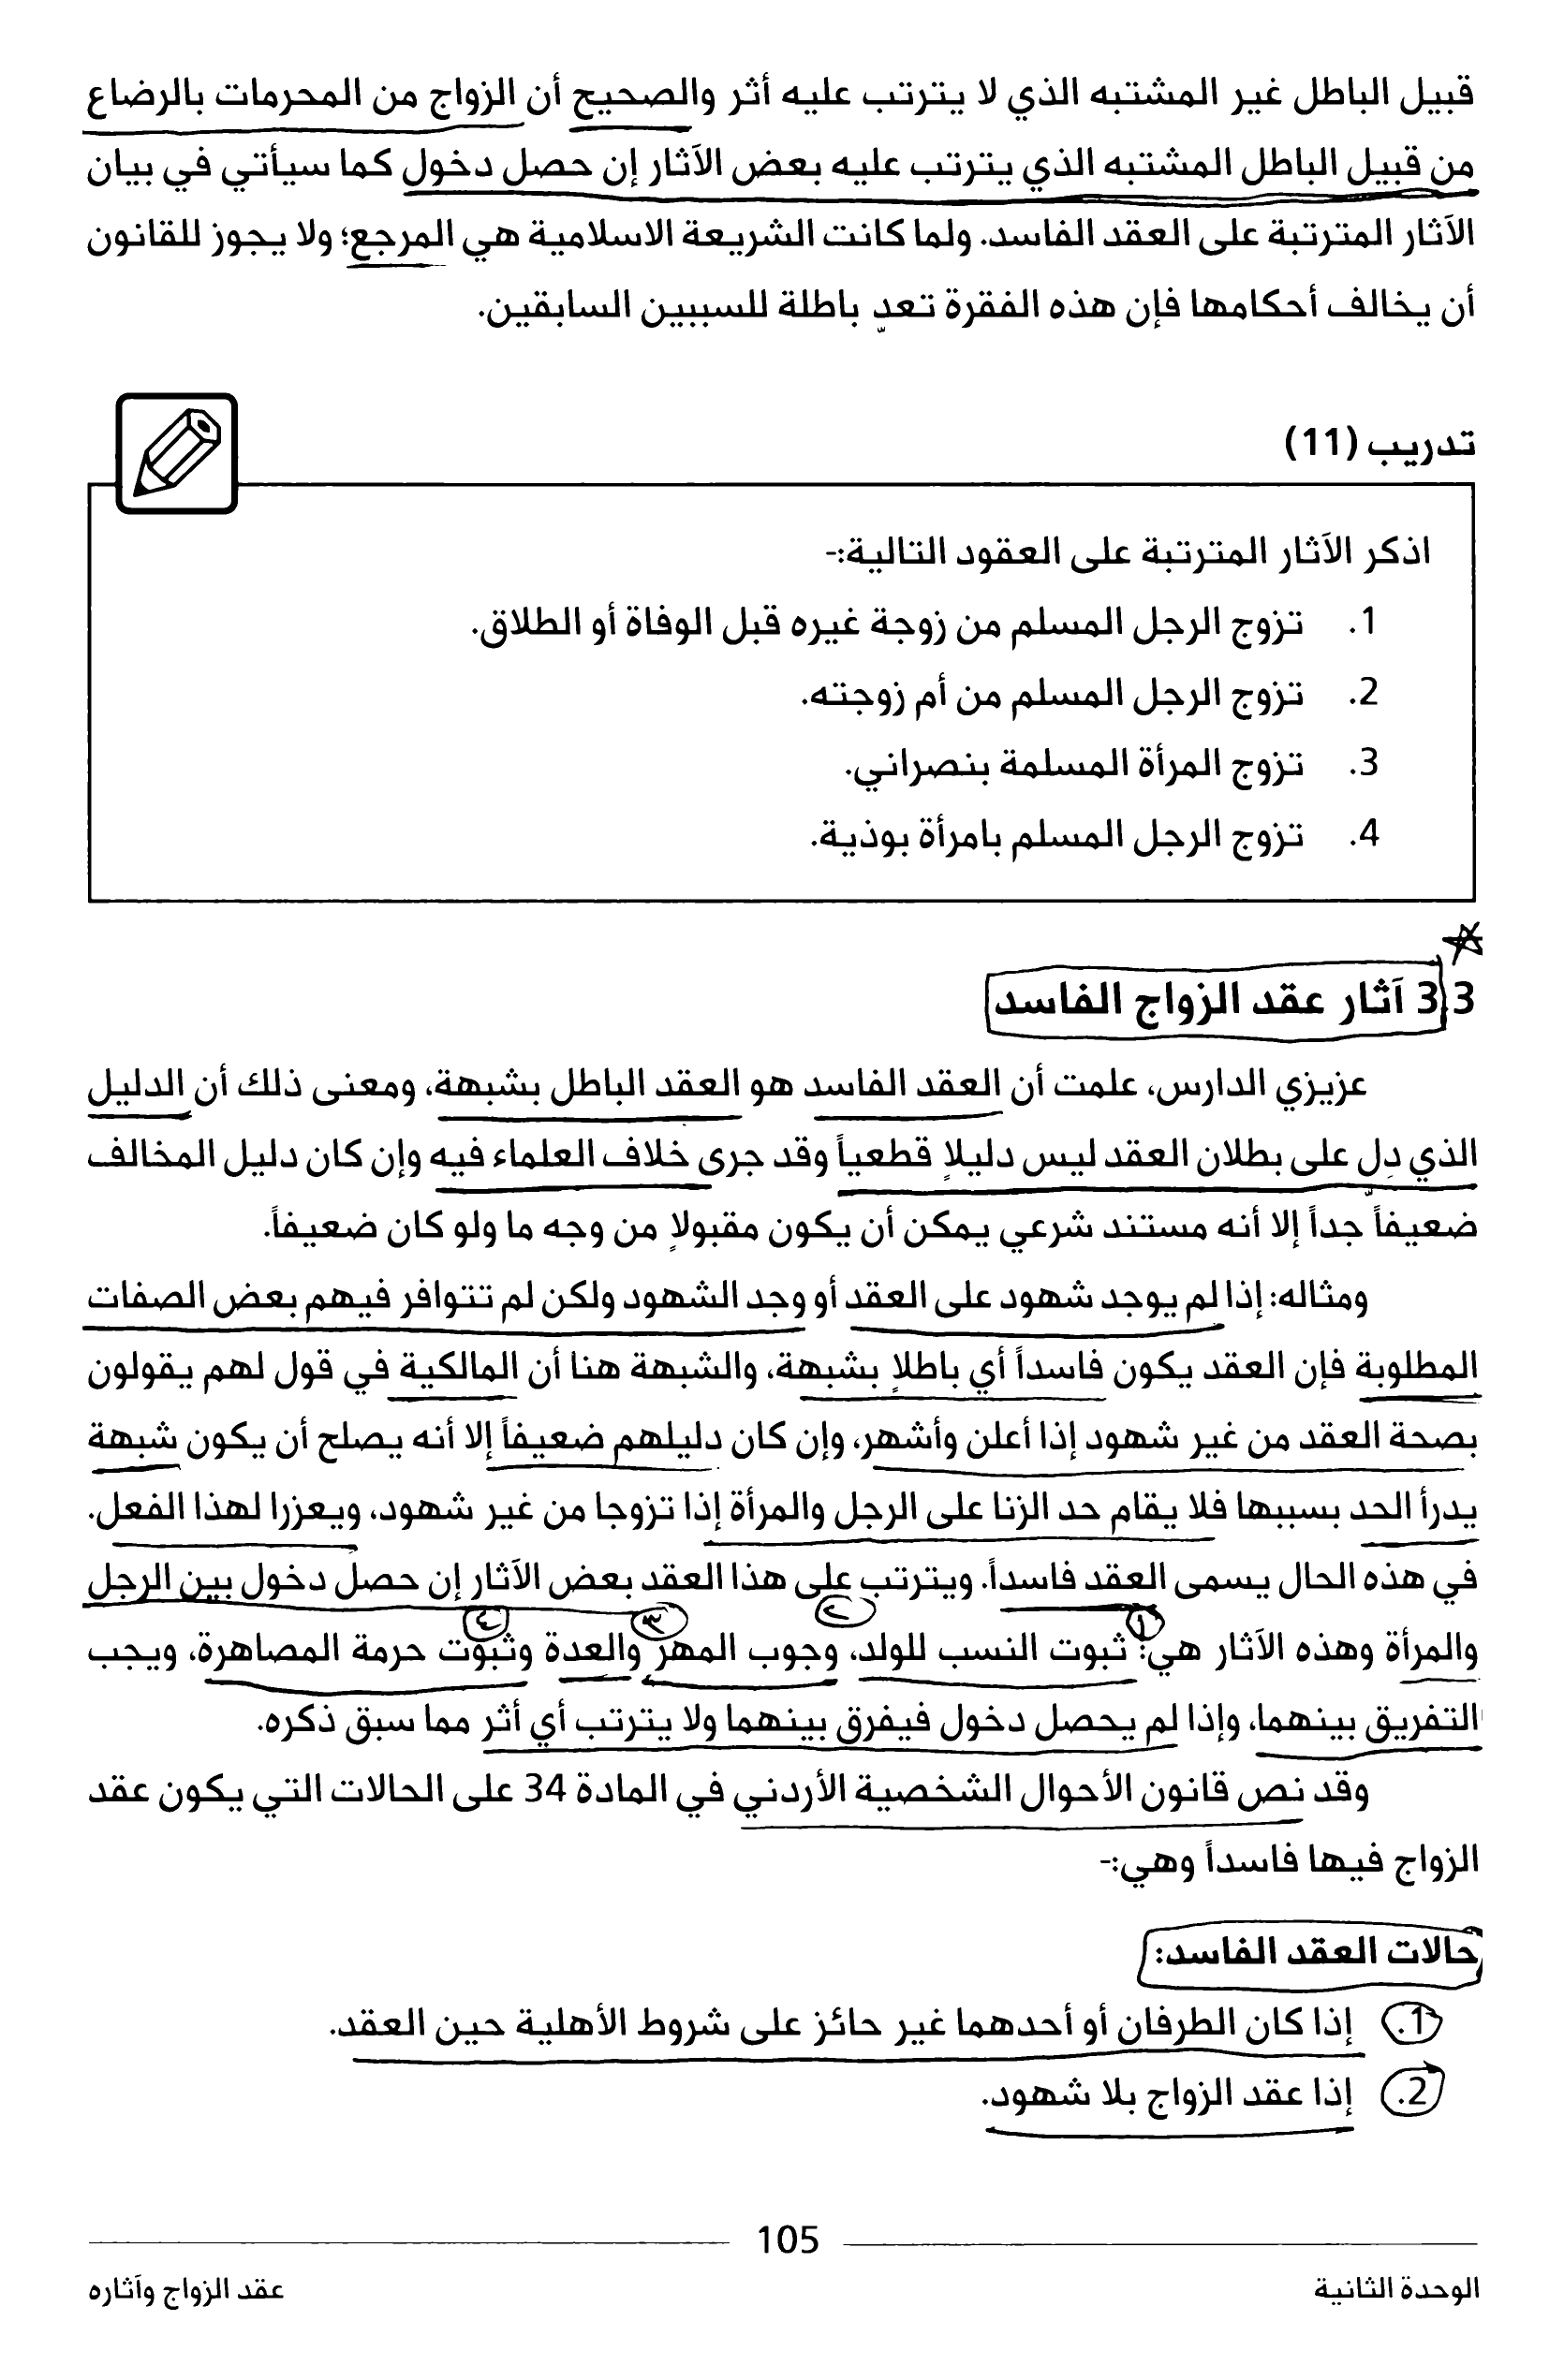 قبيل الباطل غير المشتبه الذي لا يترتب عليه أثر والصحيح أن الزواج من المحرمات بالرضاع
من قبيل الباطل المشتبه الذي يترتب عليه بعض الآثار إن حصل دخول كما سيأتي في بيان
الآثار المترتبة على العقد الفاسد. ولما كانت الشريعة الاسلامية هي المرجع؛ ولا يجوز للقانون
أن يخالف أحكامها فإن هذه الفقرة تعدٍ باطلة للسببين السابقين.
تدريب (11)
اذكر الآثار المترتبة على العقود التالية:-
1. تزوج الرجل المسلم من زوجة غيره قبل الوفاة أو الطلاق.
2. تزوج الرجل المسلم من أم زوجته.
3. تزوج المرأة المسلمة بنصراني.
4. تزوج الرجل المسلم بامرأة بوذية.
3.3 آثار عقد الزواج الفاسد
عزيزي الدارس، علمت أن العقد الفاسد هو العقد الباطل بشبهة، ومعنى ذلك أن الدليل
الذي دل على بطلان العقد ليس دليلاٍ قطعياً وقد جرى خلاف العلماء فيه وإن كان دليل المخالف
ضعيفاً جداً إلا أنه مستند شرعي يمكن أن يكون مقبولاٍ من وجه ما ولو كان ضعيفاً.
ومثاله: إذا لم يوجد شهود على العقد أو وجد الشهود ولكن لم تتوافر فيهم بعض الصفات
المطلوبة فإن العقد يكون فاسداً أي باطلاٍ بشبهة، والشبهة هنا أن المالكية في قول لهم يقولون
بصحة العقد من غير شهود إذا أعلن وأشهر، وإن كان دليلهم ضعيفاً إلا أنه يصلح أن يكون شبهة
يدرأ الحد بسببها فلا يقام حد الزنا على الرجل والمرأة إذا تزوجا من غير شهود، ويعزرا لهذا الفعل.
في هذه الحال يسمى العقد فاسداً. ويترتب على هذا العقد بعض الآثار إن حصل دخول بين الرجل
١ ٢ ٣ ٤
والمرأة وهذه الآثار هي: ثبوت النسب للولد، وجوب المهر والعدة وثبوت حرمة المصاهرة، ويجب
التفريق بينهما، وإذا لم يحصل دخول فيفرق بينهما ولا يترتب أي أثر مما سبق ذكره.
وقد نص قانون الأحوال الشخصية الأردني في المادة 34 على الحالات التي يكون عقد
الزواج فيها فاسداً وهي:-
حالات العقد الفاسد:
1. إذا كان الطرفان أو أحدهما غير حائز على شروط الأهلية حين العقد.
2. إذا عقد الزواج بلا شهود.
105
الوحدة الثانية
عقد الزواج وآثاره